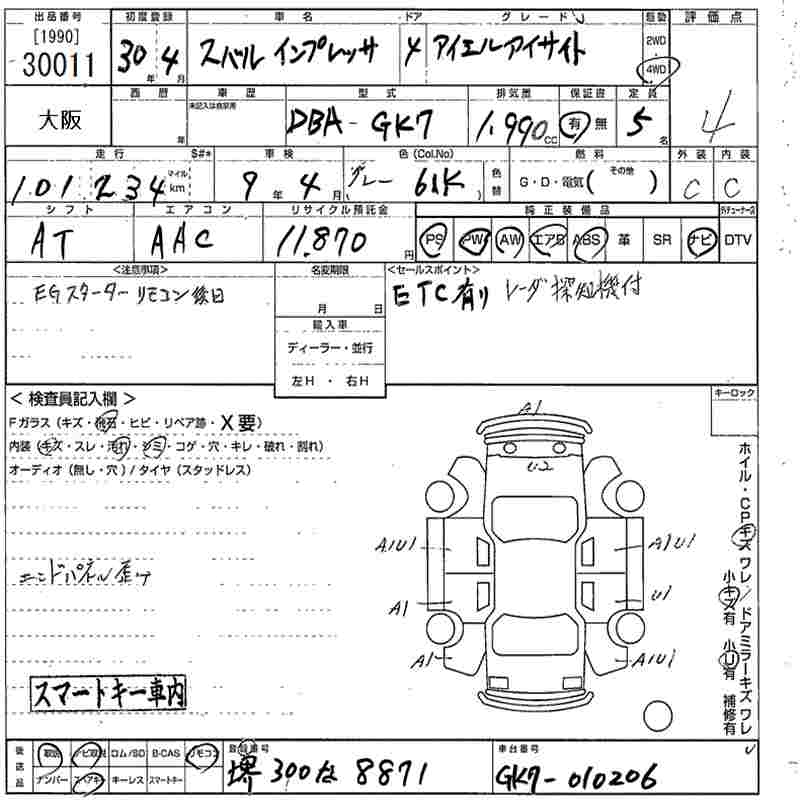 出品番号 初度登録 車名 ドア グレード 駆動 評価点
[1990]
30011 30年 4月 スバル インプレッサ 4 アイエルアイサイト 2WD
4WD
大阪 西暦 年 車歴 未記入は自家用 型式 DBA-GK7 排気量 1.990cc 保証書 有 無 定員 5名 4
走行 $#* 車検 色(Col.No) 燃料 外装 内装
101234 マイル km 9年 4月 (グレー 61K) 色替 G・D・電気( その他 ) C C
シフト エアコン リサイクル預託金 純正装備品
AT AAC 11.870円 PS PW AW エアB ABS 革 SR ナビ DTV
<注意事項> 名変期限 <セールスポイント>
EGスターターリモコン後日 月 日 ETC有り レーダ探知機付
輸入車
ディーラー・並行
左H・右H
<検査員記入欄> キーロック
Fガラス(キズ・飛石・ヒビ・リペア跡・X要)
内装(キズ・スレ・汚れ・シミ・コゲ・穴・キレ・破れ・割れ)
オーディオ(無し・穴)/タイヤ(スタッドレス)
A1
U2
A1U1 A1U1
A1 U1
A1 A1U1
エンドパネル歪み
スマートキー車内
ホイル・CPキズ ワレ/ドアミラーキズ ワレ
小キズ有 小U有 補修有
後送品 取説 ナビ取説 ロム/SD B-CAS リモコン 登録番号 車台番号
ナンバー スペアキー キーレス スマートキー 堺 300な 8871 GK7-010206